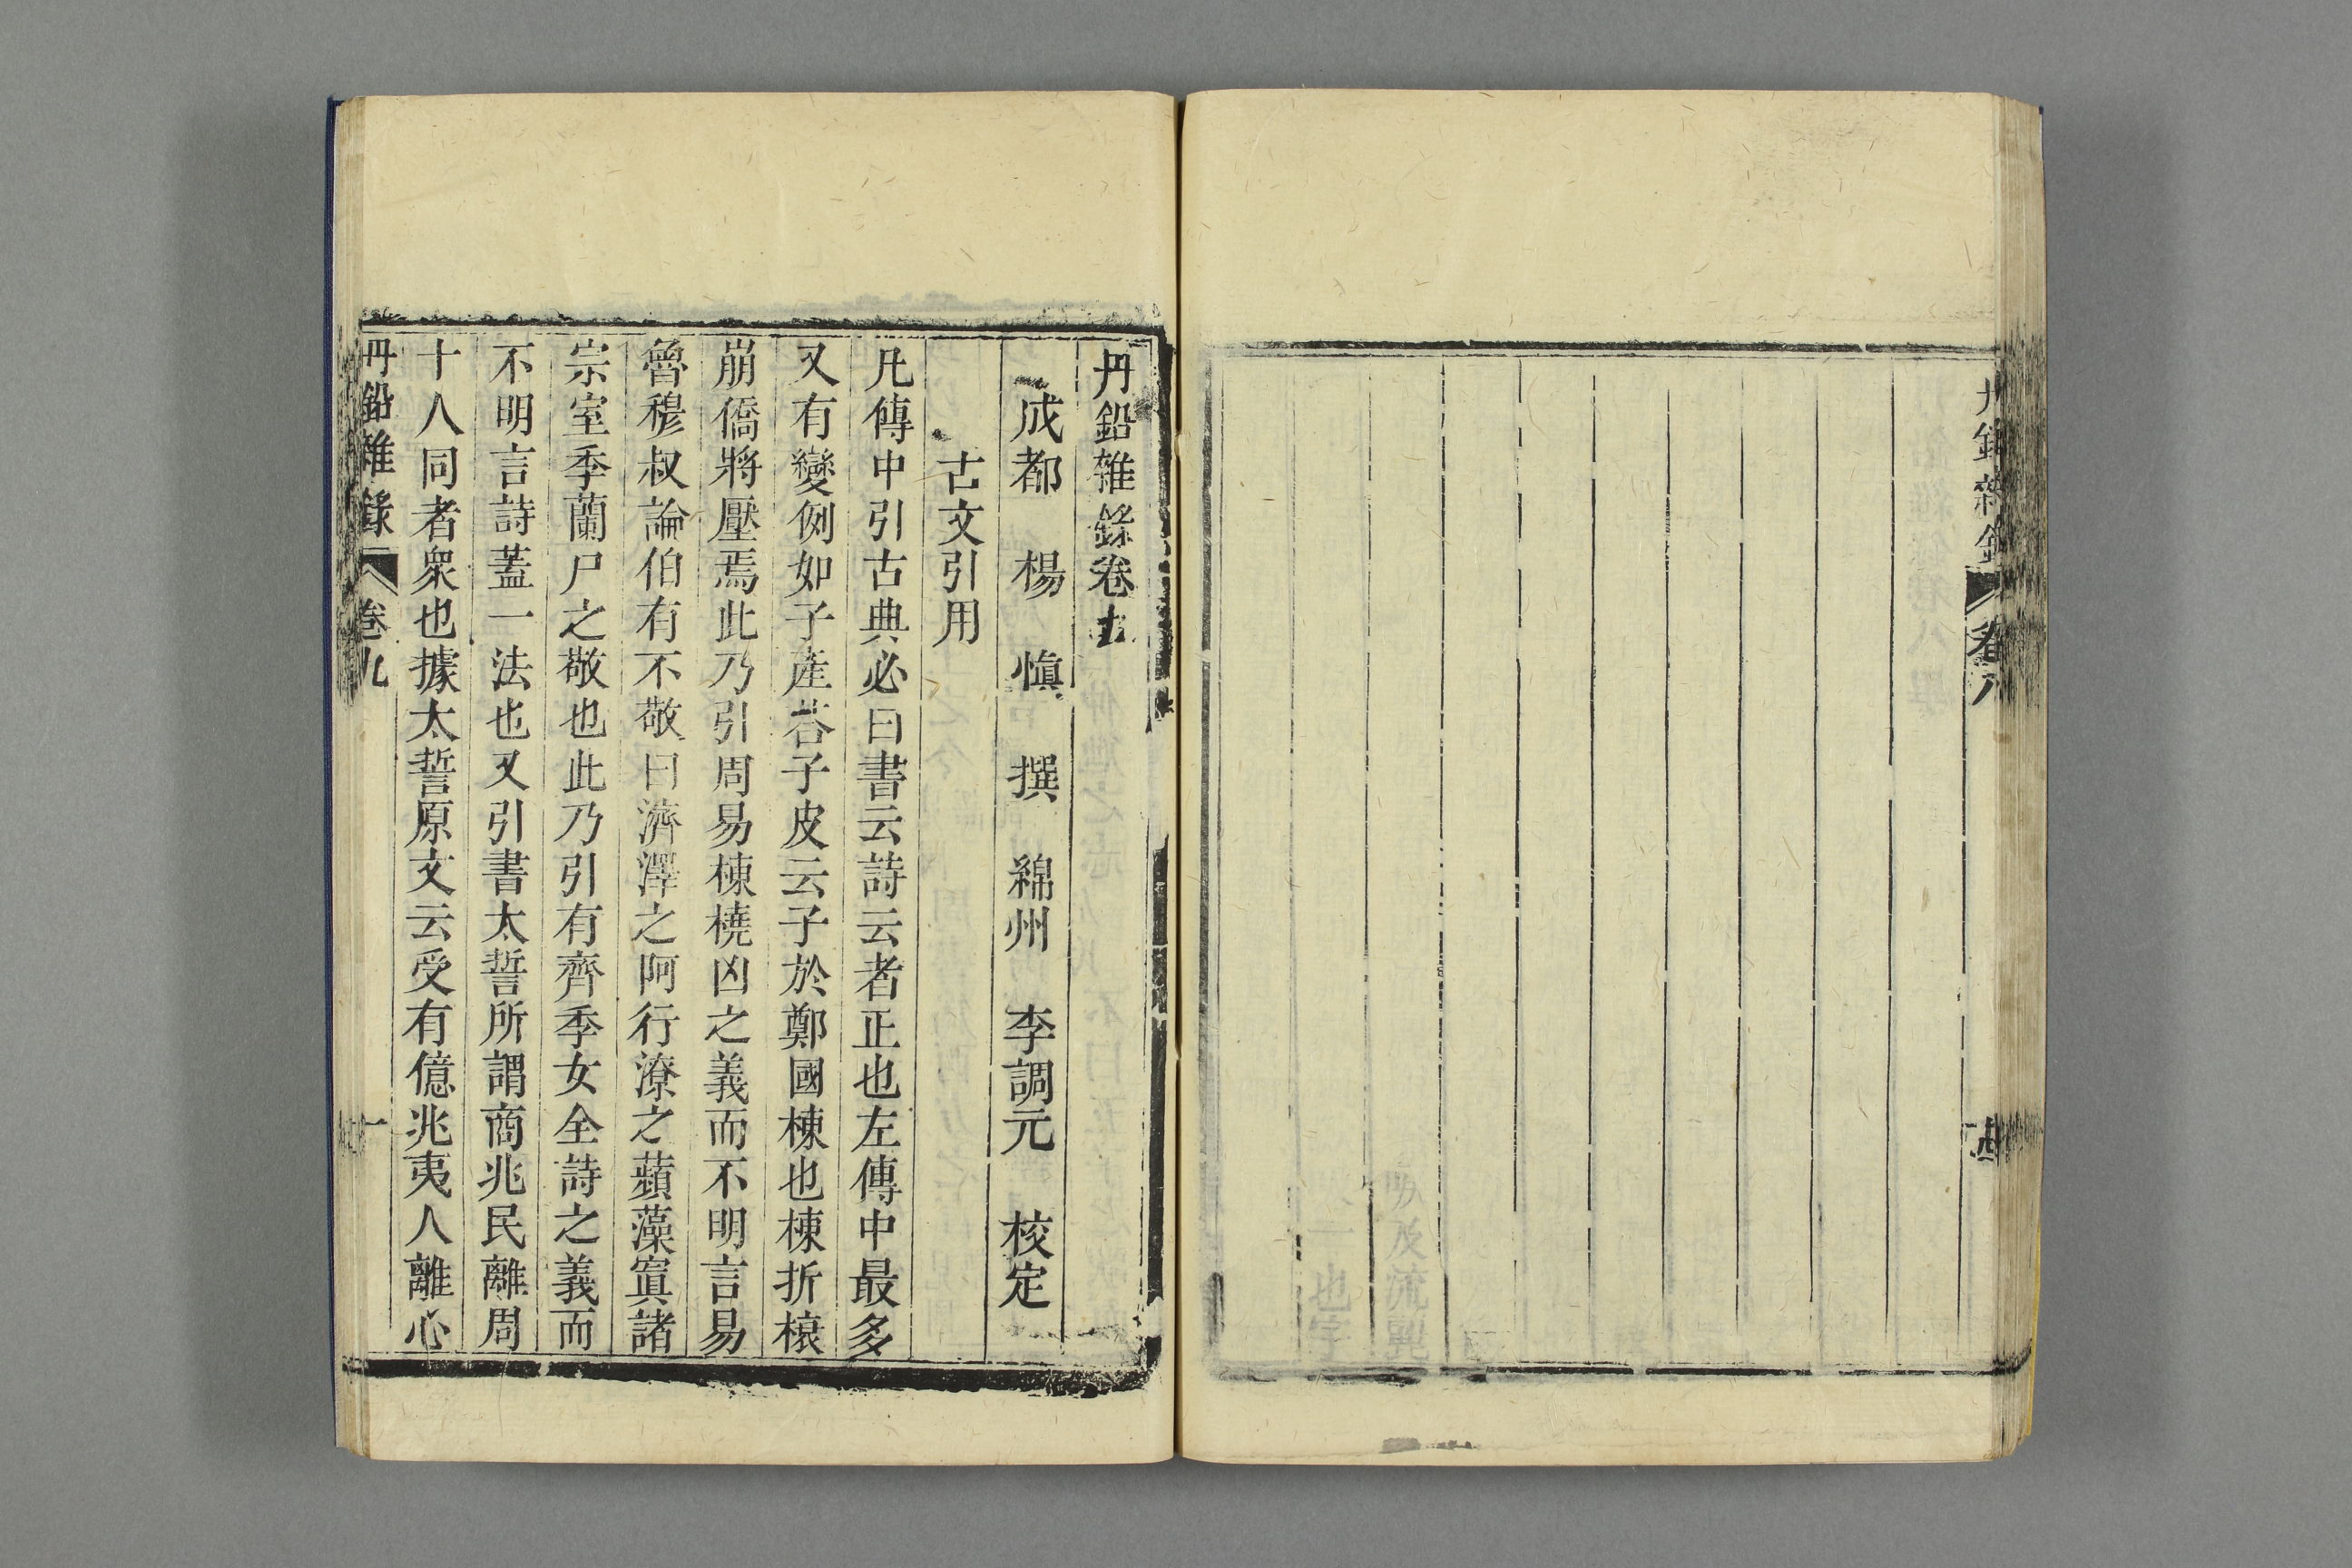 丹鉛雜錄 卷八
丹鉛雜錄卷
成都 楊 慎 撰 綿州 李調元 校定
古文引用
凡傳中引古典必曰書云詩云者正也左傳中最多
又有變例如子產荅子皮云子於鄭國棟也棟折榱
崩僑將壓焉此乃引周易棟橈凶之義而不明言易
魯穆叔論伯有不敬曰濟澤之阿行潦之蘋藻寘諸
宗室季蘭尸之敬也此乃引有齊季女全詩之義而
不明言詩蓋一法也又引書太誓所謂商兆民離周
十人同者衆也據太誓原文云受有億兆夷人離心
丹鉛雜錄 卷九 一